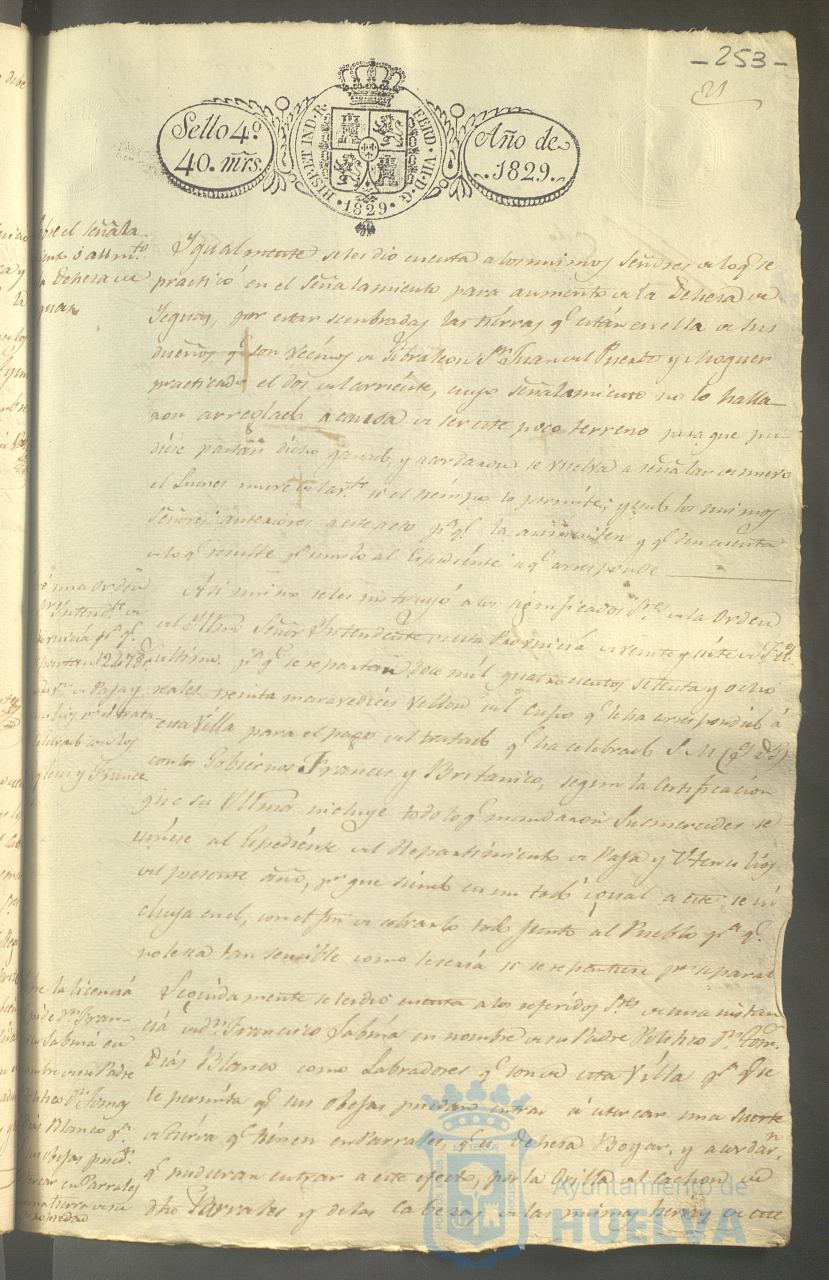 -253-
21
Sello 4º
40. mrs.
HISP. ET IND. R. FERD. VII. D. G.
·1829·
Año de
.1829.
sobre el señala-
miento
Dehesa de
Yeguas
Ygualmente seles dió cuenta a los mismos Señores de loqe. se
practicó en el Señalamiento para aumento de la Dehesa de
Yeguas, por estar sembradas las tierras qe. están en ella de sus
dueños qe. son vecinos de Gibraleon Sn. Juan del Puerto y Moguer
practicado el dos del corriente, cuyo señalamiento no lo halla-
ron arreglado a causa de ser este poco terreno para que pu-
diese pastar dicho ganado, y acordaron se vuelva a señalar de nuevo
el Jueves nueve del si el tiempo lo permite; y los mismos
Señores anteriores a este acto pa. qe. la y qe. den cuenta
de lo qe. resulte pa. unirlo al Espediente a qe. corresponde
una orden
Yntendte. de
Provincia pa. qe.
reparta 12478
de Paja y
celebrado con los
Yngleses y Frances
Asi mismo seles instruyó a los significados Sres. de la Orden
del Yltmo Señor Yntendente de esta Provincia de veinte y siete de Febº.
ultimo pa. qe. se repartan doce mil quatrocientos setenta y ocho
reales treinta maravedises vellon del Cupo qe. le ha correspondido á
esta Villa para el pago del tratado qe. ha celebrado S. M. (q. D. g.)
con los Gobiernos Frances y Britanico, segun la Certificación
que su Yltma incluye todo lo qe. mandaron Sus mercedes se
uniese al Espediente del Repartimiento de Paja y Utensilios
del presente año, pa. que siendo en un todo igual a este se in-
cluya en el, con el fin de cobrarlo todo junto al Pueblo pa. qe.
no le sea tan sencible como le seria si se repartiese pr. separado
sobre la licencia
pide Dn. Fran-
cisco Sabina en
nombre de su Padre
Politico Dn. Tomas
Dias Blanco pa.
sus obejas pued.
en Parrales
una tierra de su
propiedad
Seguidamente se les dió cuenta a los referidos Sres. de una instan-
cia de Dn. Francisco Sabina en nombre de su Padre Politico Dn. Tom.
Dias Blanco como Labradores qe. son de esta Villa pa. que se
le permita qe. sus obejas puedan entrar á estercar una suerte
de tierra qe. tienen en Parrales, qe. es Dehesa Boyar, y acordarn.
qe. pudieran entrar a este efecto, por la Orilla del cachon de
dho Parrales y de las Cabezas de las mismas tierras de este
Ayuntamiento de
HUELVA